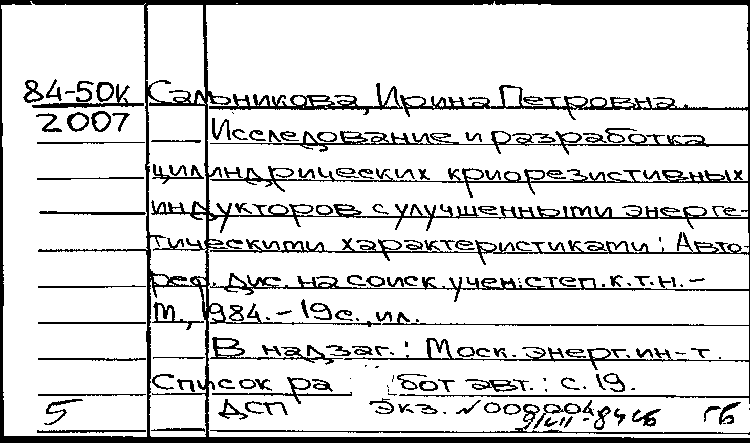 84-50к Сальникова, Ирина Петровна.
2007 Исследование и разработка
цилиндрических криорезистивных
индукторов с улучшенными энерге-
тическими характеристиками: Авто-
реф. дис. на соиск. учен. степ. к.т.н. –
М., 1984. – 19 с., ил.
В надзаг.: Моск. энерг. ин-т.
Список работ авт.: с. 19.
5 ДСП Экз. №000004
ГБ